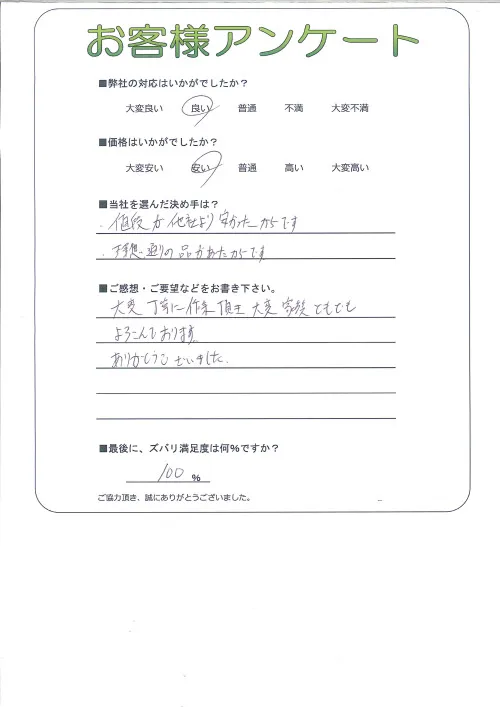 お客様アンケート
■弊社の対応はいかがでしたか？
大変良い 良い 普通 不満 大変不満
■価格はいかがでしたか？
大変安い 安い 普通 高い 大変高い
■当社を選んだ決め手は？
・値段が他社より安かったからです
・予想通りの品があたからです
■ご感想・ご要望などをお書き下さい。
大変丁寧に作業頂き大変家族ともども
よろこんでおります
ありがとうございました.
■最後に、ズバリ満足度は何%ですか？
100 %
ご協力頂き、誠にありがとうございました。